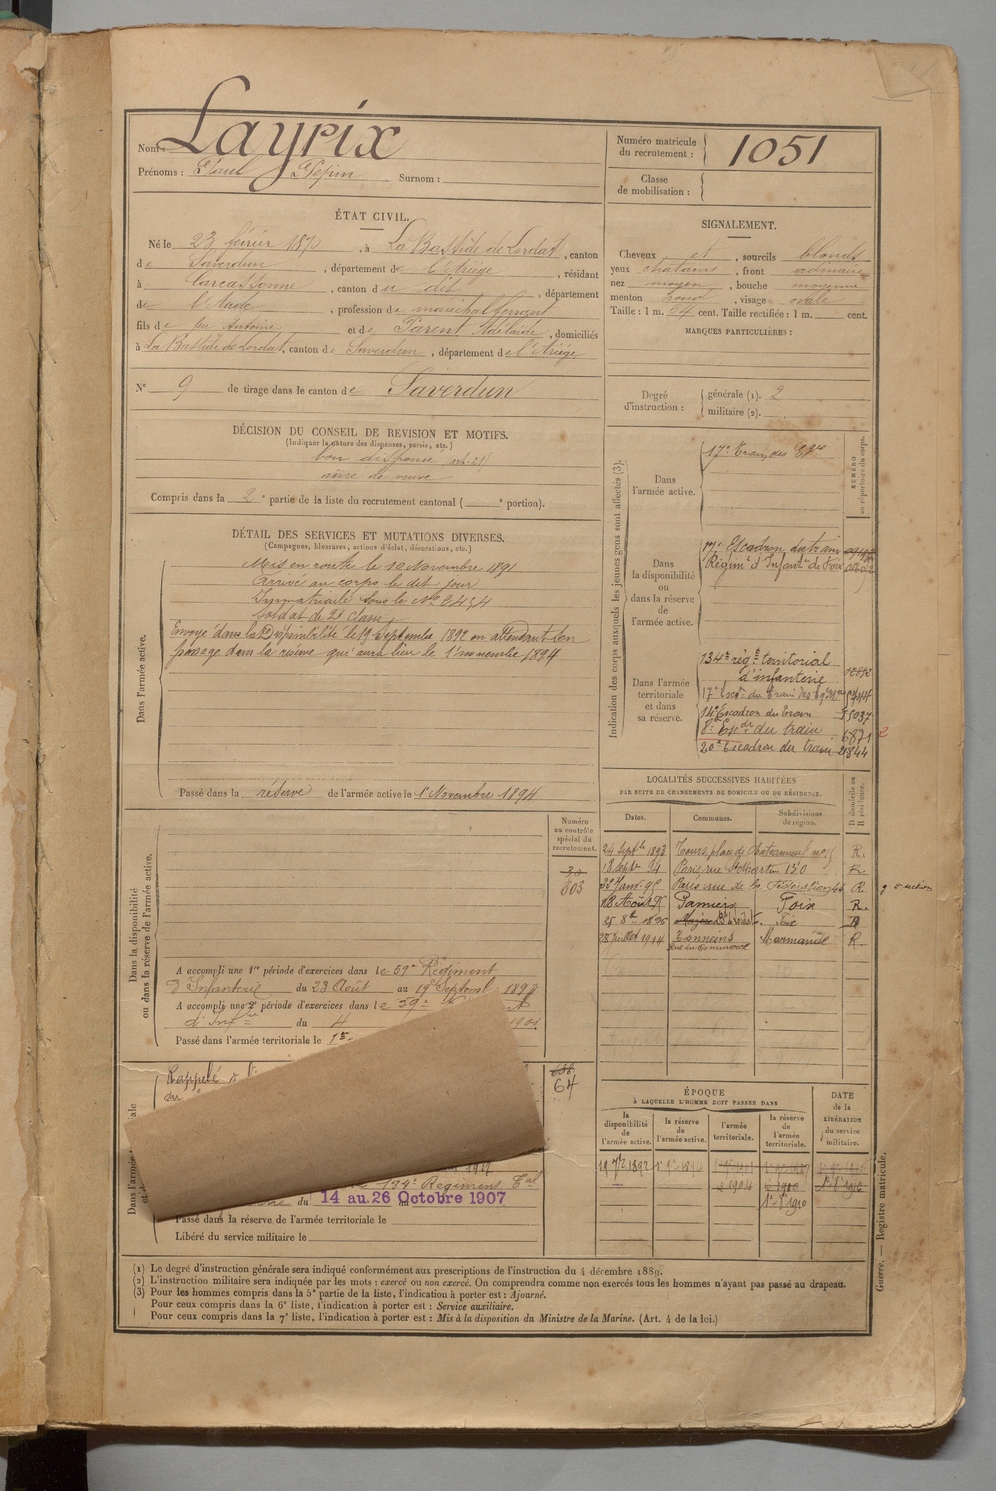 Nom : Layrix
Prénoms : Paul Pépin Surnom :
Numéro matricule du recrutement : 1051
Classe de mobilisation :
ÉTAT CIVIL.
Né le 23 février 1870, à La Bastide de Lordat, canton
de Saverdun, département de l'Ariège, résidant
à Carcassonne, canton du dit, département
de l'Aude, profession de maréchal ferrant
fils de feu Antoine et de Parent, domiciliés
à La Bastide de Lordat, canton de Saverdun, département de l'Ariège
N° 9 de tirage dans le canton de Saverdun
SIGNALEMENT.
Cheveux et, sourcils blonds
yeux chatains, front ordinaire
nez moyen, bouche moyenne
menton rond, visage ovale
Taille : 1 m. cent. Taille rectifiée : 1 m. cent.
MARQUES PARTICULIÈRES :
Degré d'instruction :
générale (1). 2
militaire (2).
DÉCISION DU CONSEIL DE REVISION ET MOTIFS.
(Indiquer la nature des dispenses, sursis, etc.)
bon dispensé (art. 21)
aîné de veuve
Compris dans la 2e partie de la liste du recrutement cantonal ( e portion).
DÉTAIL DES SERVICES ET MUTATIONS DIVERSES.
(Campagnes, blessures, actions d'éclat, décorations, etc.)
Dans l'armée active.
Mis en route le 10 Novembre 1891
Arrivé au corps le dit jour
Immatriculé sous le No 2454
Soldat de 2e classe,
Envoyé dans la Disponibilité le 19 septembre 1892 en attendant son
passage dans la réserve qui aura lieu le 1er novembre 1894
Passé dans la réserve de l'armée active le 1er Novembre 1894
Indication des corps auxquels les jeunes gens sont affectés (3).
NUMÉRO au répertoire du corps.
Dans l'armée active.
17e Train des Eq
Dans la disponibilité ou dans la réserve de l'armée active.
17e Escadron du train
Régimt d'Infantie de Foix
Dans l'armée territoriale et dans sa réserve.
134e régt territorial
d'infanterie
17e Escon du Train des
14e Escadron du train 5037
8e du train 6871
20e Escadron du train 2844
Dans la disponibilité ou dans la réserve de l'armée active.
Numéro au contrôle spécial du recrutement.
803
A accompli une 1re période d'exercices dans le 59e Régiment
d'Infanterie du 23 Août au 19 Septemb
A accompli une 2e période d'exercices dans le 59e
d'Infie du 4
Passé dans l'armée territoriale le
Rappelé
64
134e Régiment
du 14 au 26 Octobre 1907
Passé dans la réserve de l'armée territoriale le
Libéré du service militaire le
LOCALITÉS SUCCESSIVES HABITÉES
PAR SUITE DE CHANGEMENTS DE DOMICILE OU DE RÉSIDENCE.
Dates. Communes. Subdivisions de région. D domicile ou R résidence.
24 Septb 1893 Tours, place de Chateauneuf R.
18 Septe 94 Paris rue St Martin 130 R.
Janv. 95 Paris rue de la Fédération 44 R.
18 Août Pamiers Foix R.
25 8bre 1896 Foix
28 Juillet 1914 Tonneins Marmande R.
rue du Commerce
ÉPOQUE
À LAQUELLE L'HOMME DOIT PASSER DANS
la disponibilité de l'armée active. la réserve de l'armée active. l'armée territoriale. la réserve de l'armée territoriale.
DATE de la LIBÉRATION du service militaire.
19 7bre 1892
1904
1er 8e 1910
Guerre. — Registre matricule.
(1) Le degré d'instruction générale sera indiqué conformément aux prescriptions de l'instruction du 4 décembre 1889.
(2) L'instruction militaire sera indiquée par les mots : exercé ou non exercé. On comprendra comme non exercés tous les hommes n'ayant pas passé au drapeau.
(3) Pour les hommes compris dans la 5e partie de la liste, l'indication à porter est : Ajourné.
Pour ceux compris dans la 6e liste, l'indication à porter est : Service auxiliaire.
Pour ceux compris dans la 7e liste, l'indication à porter est : Mis à la disposition du Ministre de la Marine. (Art. 4 de la loi.)